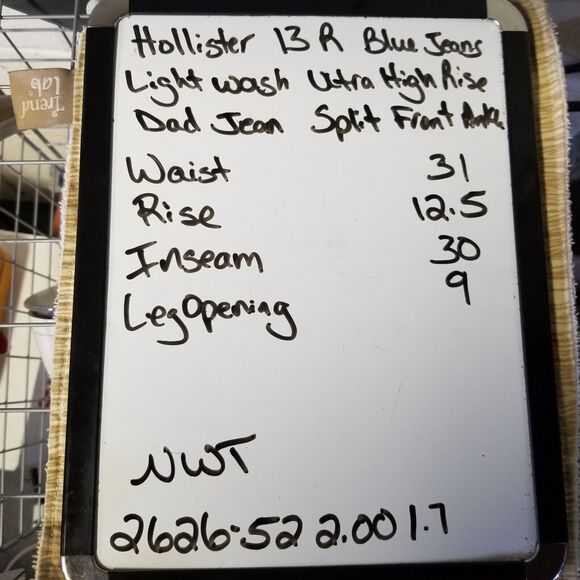 Hollister 13 R Blue Jeans
Light wash Utra High Rise
Dad Jean Split Front Ankle
Waist 31
Rise 12.5
Inseam 30
Leg Opening 9
NWT
2626-52 2.00 1.7
Trend
Lab